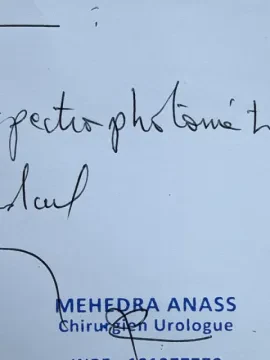 spectrophotomét
calcul
MEHEDRA ANASS
Chirurgien Urologue